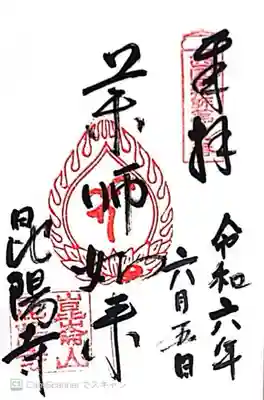 奉拝
令和六年
六月五日
薬師如来
昆陽寺
CamScanner でスキャン